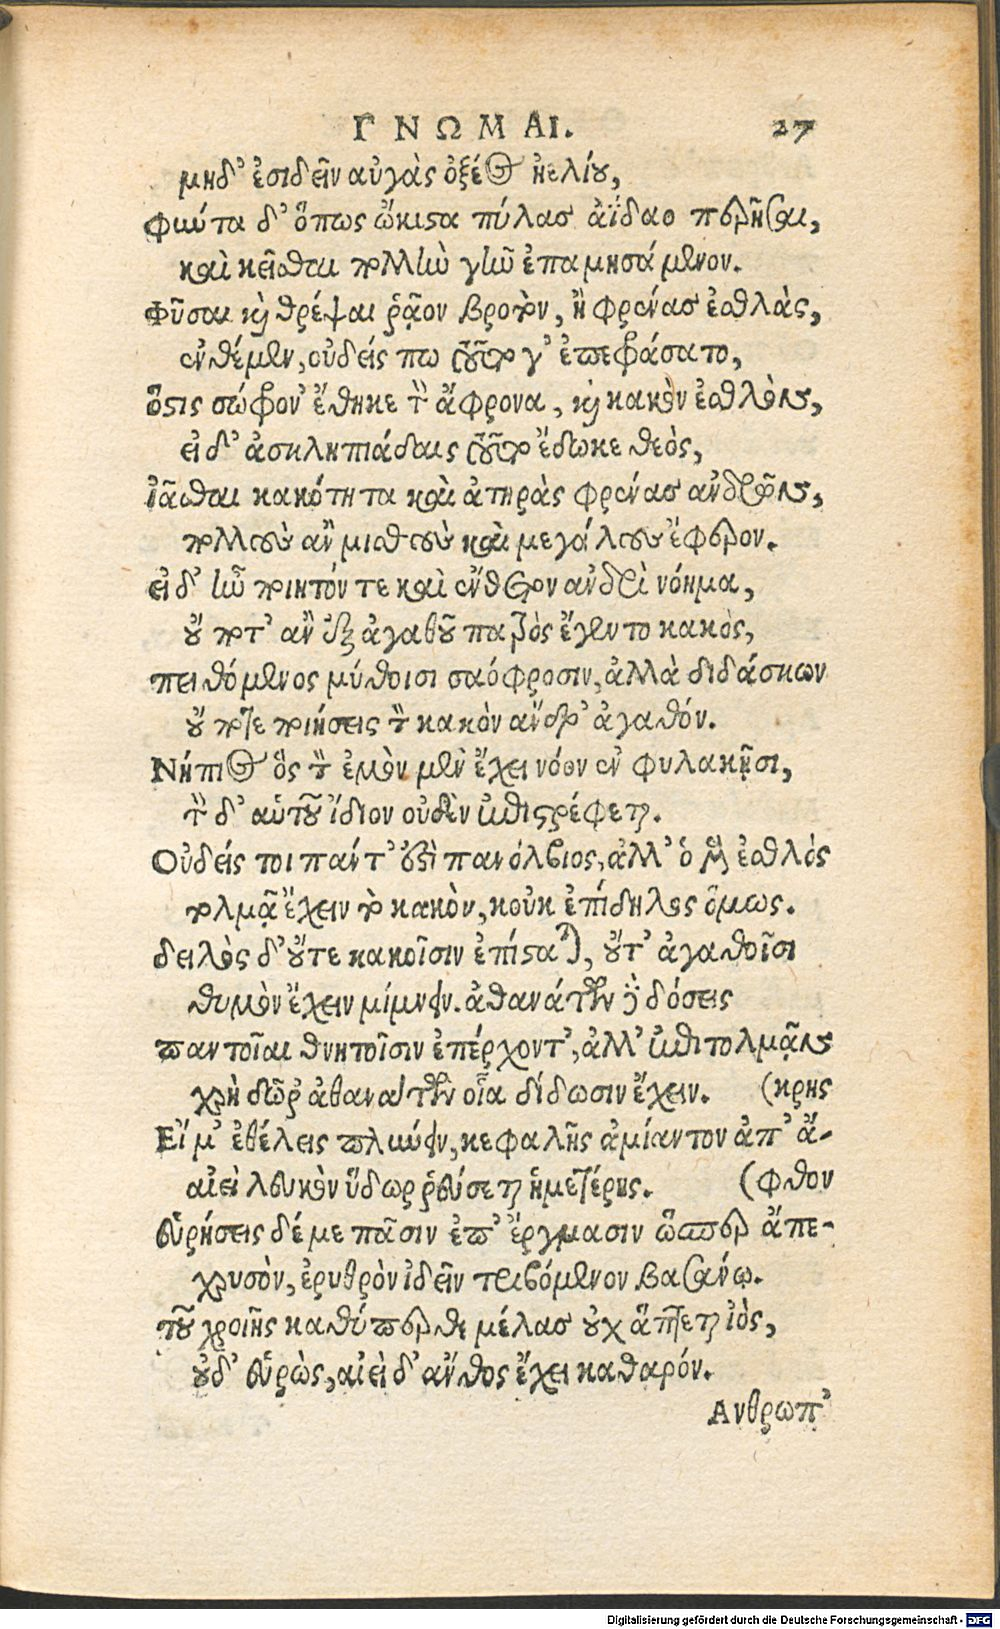 ΓΝΩΜΑΙ. 27
μηδ' ἐσιδεῖν αὐγὰς ὀξέος ἠελίου,
φύντα δ' ὅπως ὤκιστα πύλας ἀΐδαο περῆσαι,
καὶ κεῖσθαι πολλὴν γῆν ἐπαμησάμενον.
Φῦσαι καὶ θρέψαι ῥᾷον βροτὸν, ἢ φρένας ἐσθλὰς,
ἐνθέμεν, οὐδείς πω τοῦτο γ' ἐπεφράσατο,
ὅστις σώφρον' ἔθηκε τὸν ἄφρονα, καὶ κακὸν ἐσθλὸν,
εἰ δ' ἀσκληπιάδαις τοῦτο ἔδωκε θεὸς,
ἰᾶσθαι κακότητα καὶ ἀτηρὰς φρένας ἀνδρῶν,
πολλοὺς ἂν μισθοὺς καὶ μεγάλους ἔφερον.
εἰ δ' ἦν ποιητόν τε καὶ ἔνθετον ἀνδρὶ νόημα,
οὔ ποτ' ἂν ἐξ ἀγαθοῦ πατρὸς ἔγεντο κακὸς,
πειθόμενος μύθοισι σαόφροσιν, ἀλλὰ διδάσκων
οὔ ποτε ποιήσεις τὸν κακὸν ἄνδρ' ἀγαθόν.
Νήπιος ὃς τὸν ἐμὸν μὲν ἔχει νόον ἐν φυλακῇσι,
τὸν δ' αὑτοῦ ἴδιον οὐδὲν ἐπιστρέφεται.
Οὐδείς τοι πάντ' ἐστὶ πανόλβιος, ἀλλ' ὁ μὲν ἐσθλὸς
τολμᾷ ἔχειν τὸ κακὸν, κοὐκ ἐπίδηλος ὅμως.
δειλὸς δ' οὔτε κακοῖσιν ἐπίσταται, οὔτ' ἀγαθοῖσι
θυμὸν ἔχειν μίμνειν. ἀθανάτων γὰρ δόσεις
παντοῖαι θνητοῖσιν ἐπέρχοντ', ἀλλ' ἐπιτολμᾷν
χρὴ δῶρ' ἀθανάτων οἷα δίδωσιν ἔχειν. (κρης
Εἴ μ' ἐθέλεις πλύνειν, κεφαλῆς ἀμίαντον ἀπ' ἄ-
αἰεὶ λευκὸν ὕδωρ ῥεύσεται ἡμετέρης. (φθον
εὑρήσεις δέ με πᾶσιν ἐπ' ἔργμασιν ὥσπερ ἄπε-
χρυσὸν, ἐρυθρὸν ἰδεῖν τριβόμενον βασάνῳ.
τοῦ χροιῆς καθύπερθε μέλας οὐχ ἅπτεται ἰὸς,
οὐδ' εὑρὼς, αἰεὶ δ' ἄνθος ἔχει καθαρόν.
Ανθρωπ'
Digitalisierung gefördert durch die Deutsche Forschungsgemeinschaft - DFG